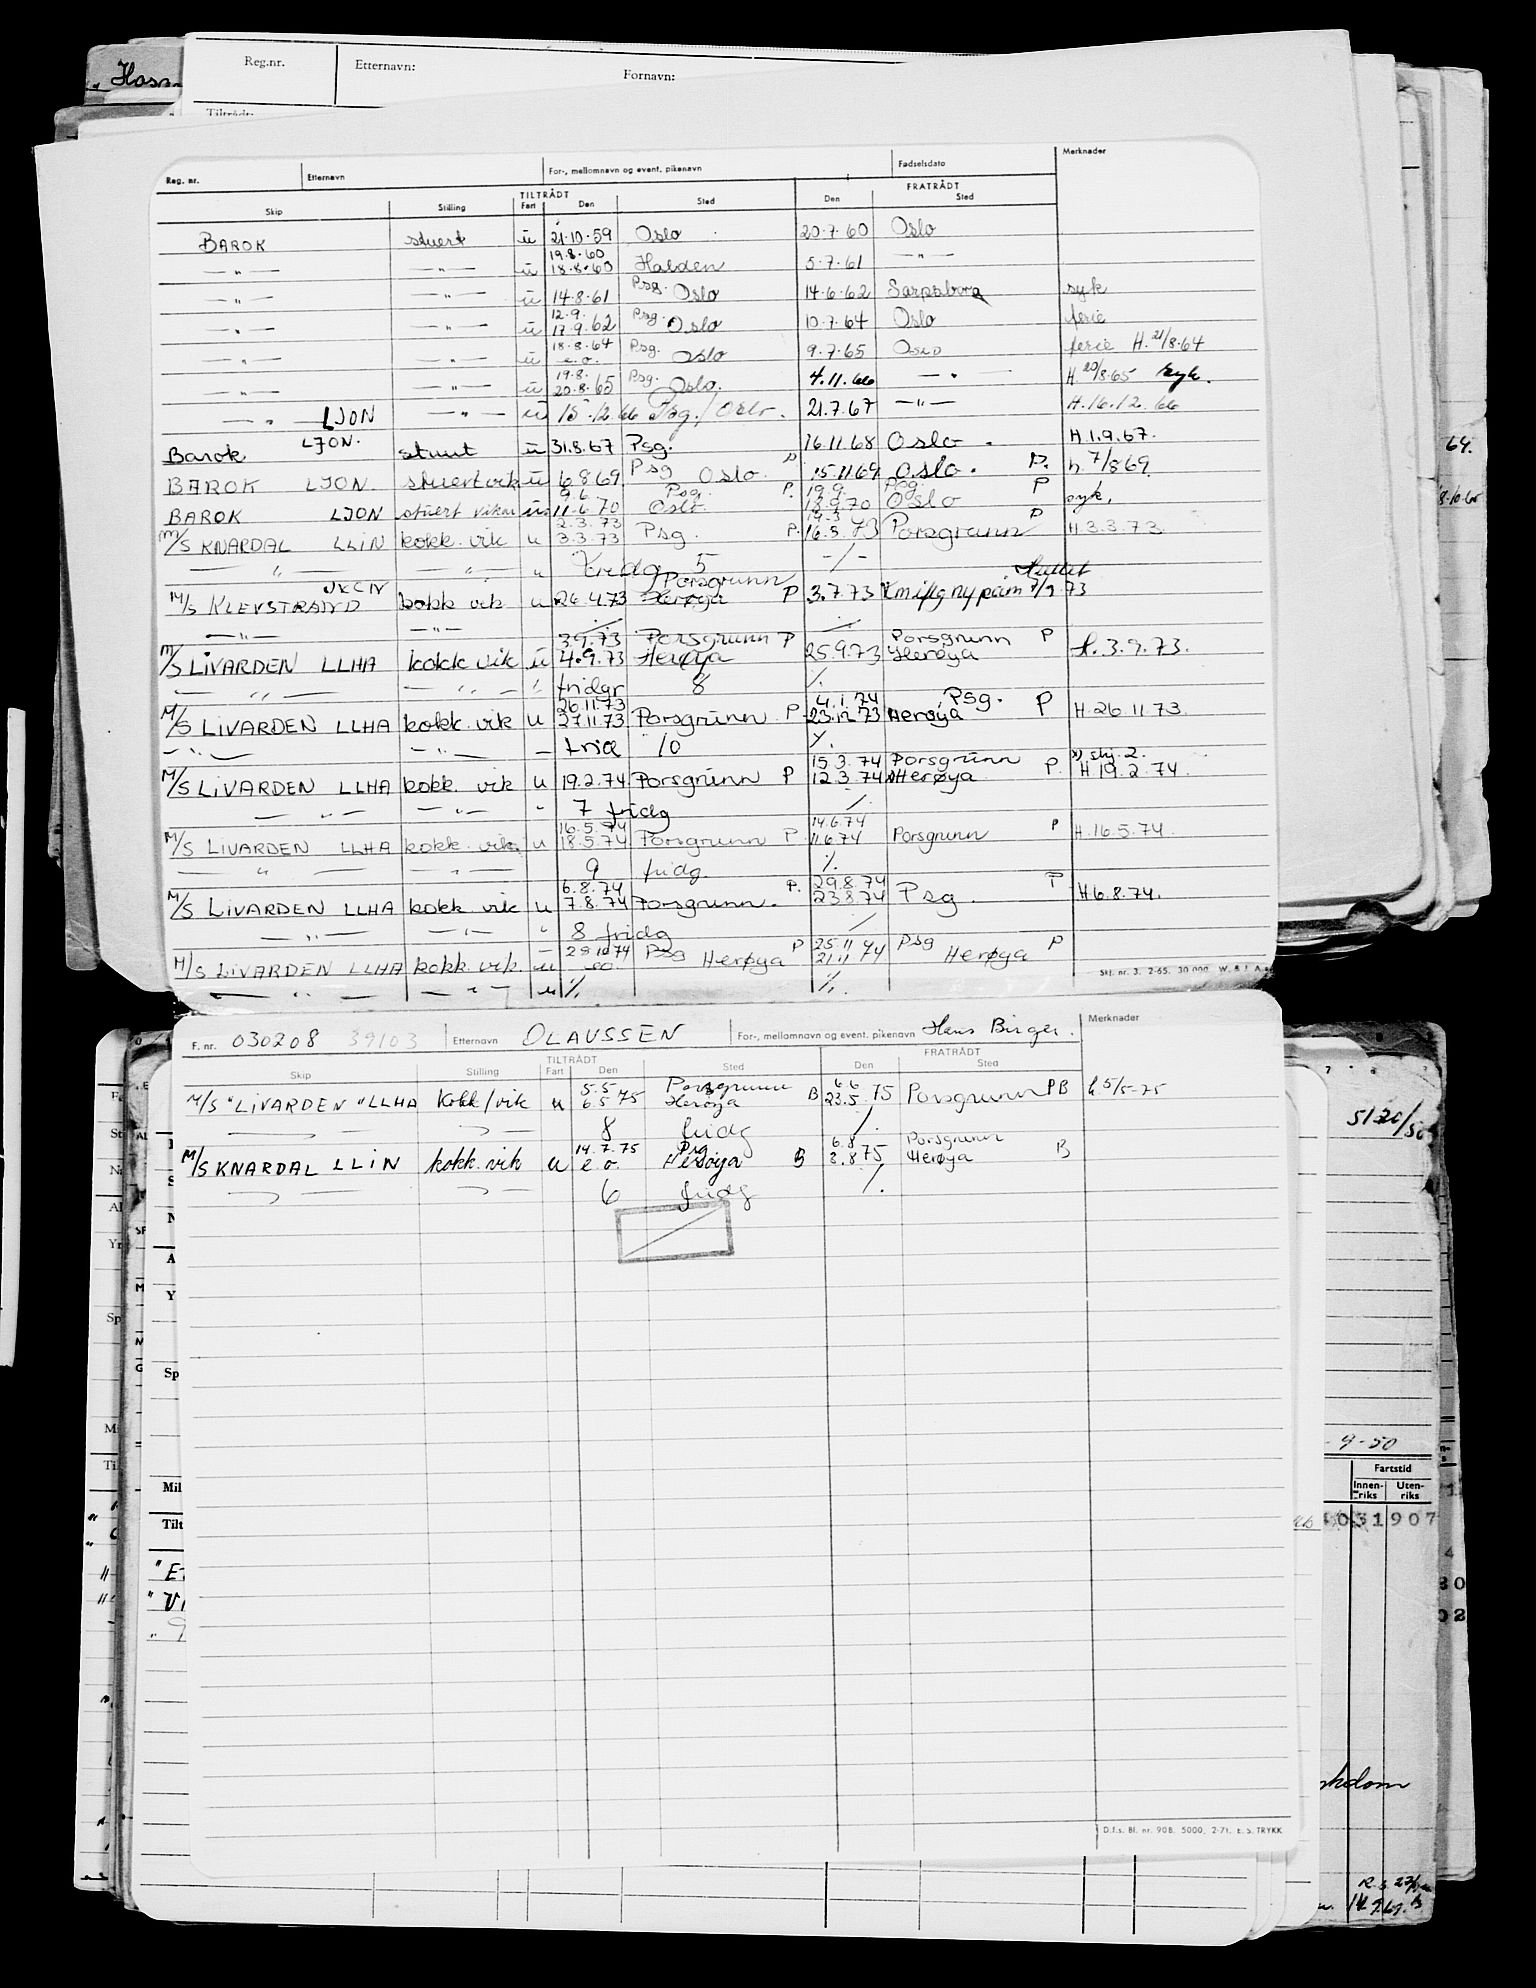 Hosa
Reg.nr. Etternavn: Fornavn:
Tiltrådt:
Reg. nr. Etternavn For-, mellomnavn og event. pikenavn Fødselsdato Merknader
TILTRÅDT FRATRÅDT
Skip Stilling Fart Den Sted Den Sted
BAROK stuert u 21.10.59 Oslo 20.7.60 Oslo
—"— —"— u 19.8.60 18.8.60 Halden 5.7.61 —"—
—"— —"— u 14.8.61 Psg. Oslo 14.6.62 Sarpsborg syk
—"— —"— u 12.9. 17.9.62 Psg. Oslo 10.7.64 Oslo ferie
—"— —"— u 18.8.64 e.o. Psg. Oslo 9.7.65 Oslo ferie H. 21/8.64
—"— —"— u 19.8. 20.8.65 Psg. Oslo. 4.11.66 —"— H. 20/8.65 syk.
—"— LJON —"— u 15.12.66 Psg./Oslo. 21.7.67 —"— H.16.12.66
Barok LJON. stuert u 31.8.67 Psg. 16.11.68 Oslo. H.1.9.67.
BAROK LJON. stuert vik u 6.8.69 Psg Oslo. P 15.11.69 Oslo. P. h 7/8 69
BAROK LJON stuert vikar u 9.6. 11.6.70 Psg. Oslo. P. 19.9. 18.9.70 Psg. Oslo P syk.
M/S KNARDAL LLIN kokk. vik u 2.3.73 3.3.73 Psg. P. 19.3 16.3.73 Porsgrunn P H.3.3.73.
—"— —"— " fridg 5 -/-
M/S KLEVSTRAND JXCN kokk vik u 26.4.73 Porsgrunn Herøya P 3.7.73 7/9.73
—"— —"— ./. ./.
M/S LIVARDEN LLHA kokk vik u 3.9.73 4.9.73 Porsgrunn Herøya P 25.9.73 Porsgrunn Herøya P H.3.9.73.
—"— —"— " fridgr 8 ./.
M/S LIVARDEN LLHA kokk. vik u 26.11.73 27.11.73 Porsgrunn P 4.1.74 23.12.73 Psg. Herøya P H.26.11.73.
—"— —"— — frid 10 ./.
M/S LIVARDEN LLHA kokk. vik u 19.2.74 Porsgrunn P 15.3.74 12.3.74 Porsgrunn Herøya P. H 19.2.74.
—"— —"— " 7 fridg ./.
M/S LIVARDEN LLHA kokk. vik. u 16.5.74 18.5.74 Porsgrunn P 14.6.74 11.6.74 Porsgrunn P H.16.5.74.
—"— —"— 9 fridg ./.
M/S LIVARDEN LLHA kokk vik u 6.8.74 7.8.74 Porsgrunn. P. 29.8.74 23.8.74 Psg. P H 6.8.74.
—"— —"— " 8 fridg ./.
M/S LIVARDEN LLHA kokk. vik. u 28.10.74 e.o. Psg Herøya P 25.11 21.11 74 Psg Herøya P
—"— —"— u ./. ./.
Skf. nr. 3. 2-65. 30 000. W. & J. A.
F. nr. 030208 39103 Etternavn OLAUSSEN For-, mellomnavn og event. pikenavn Hans Birger. Merknader
TILTRÅDT FRATRÅDT
Skip Stilling Fart Den Sted Den Sted
M/S "LIVARDEN" LLHA Kokk/vik u 5.5 6.5 75 Porsgrunn Herøya B 6.6 23.5 75 Porsgrunn PB h 5/5-75
—"— —"— 8 fridg ./.
M/S KNARDAL LLIN kokk. vik u 14.7.75 e.o. Psg Herøya B 6.8 2.8 75 Porsgrunn Herøya B
—"— —"— 6 fridg ./.
D.f.s. Bl. nr. 90B. 5000. 2-71. E.S. TRYKK
64.
5126/50
-9-50
Fartstid
Innen-riks Uten-riks
031907
Mil
Tilt